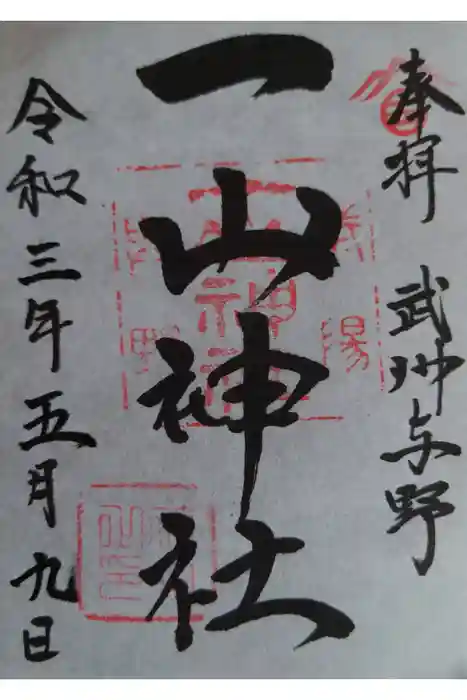 奉拝 武州与野
一山神社
令和三年五月九日